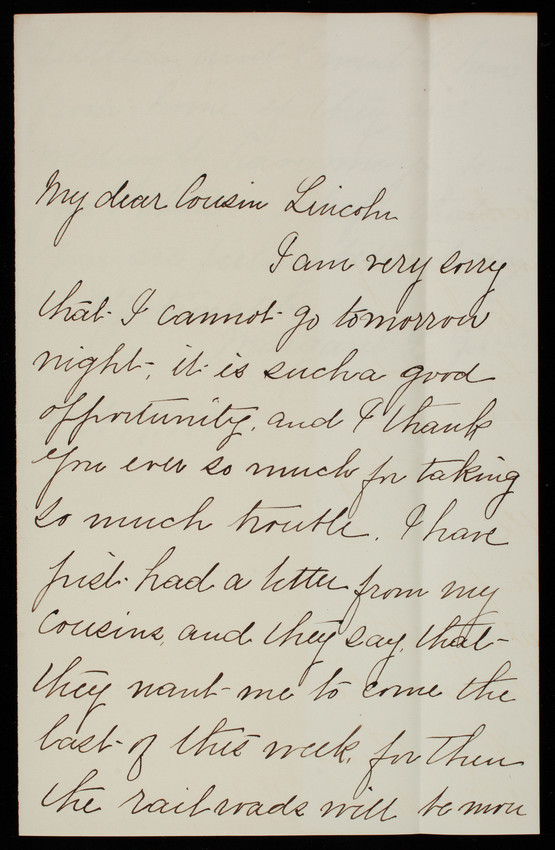 My dear Cousin Lincoln
I am very sorry
that I cannot go tomorrow
night, it is such a good
opportunity, and I thank
you ever so much for taking
so much trouble. I have
just had a letter from my
cousins, and they say, that
they want me to come the
last of this week, for then
the railroads will be more